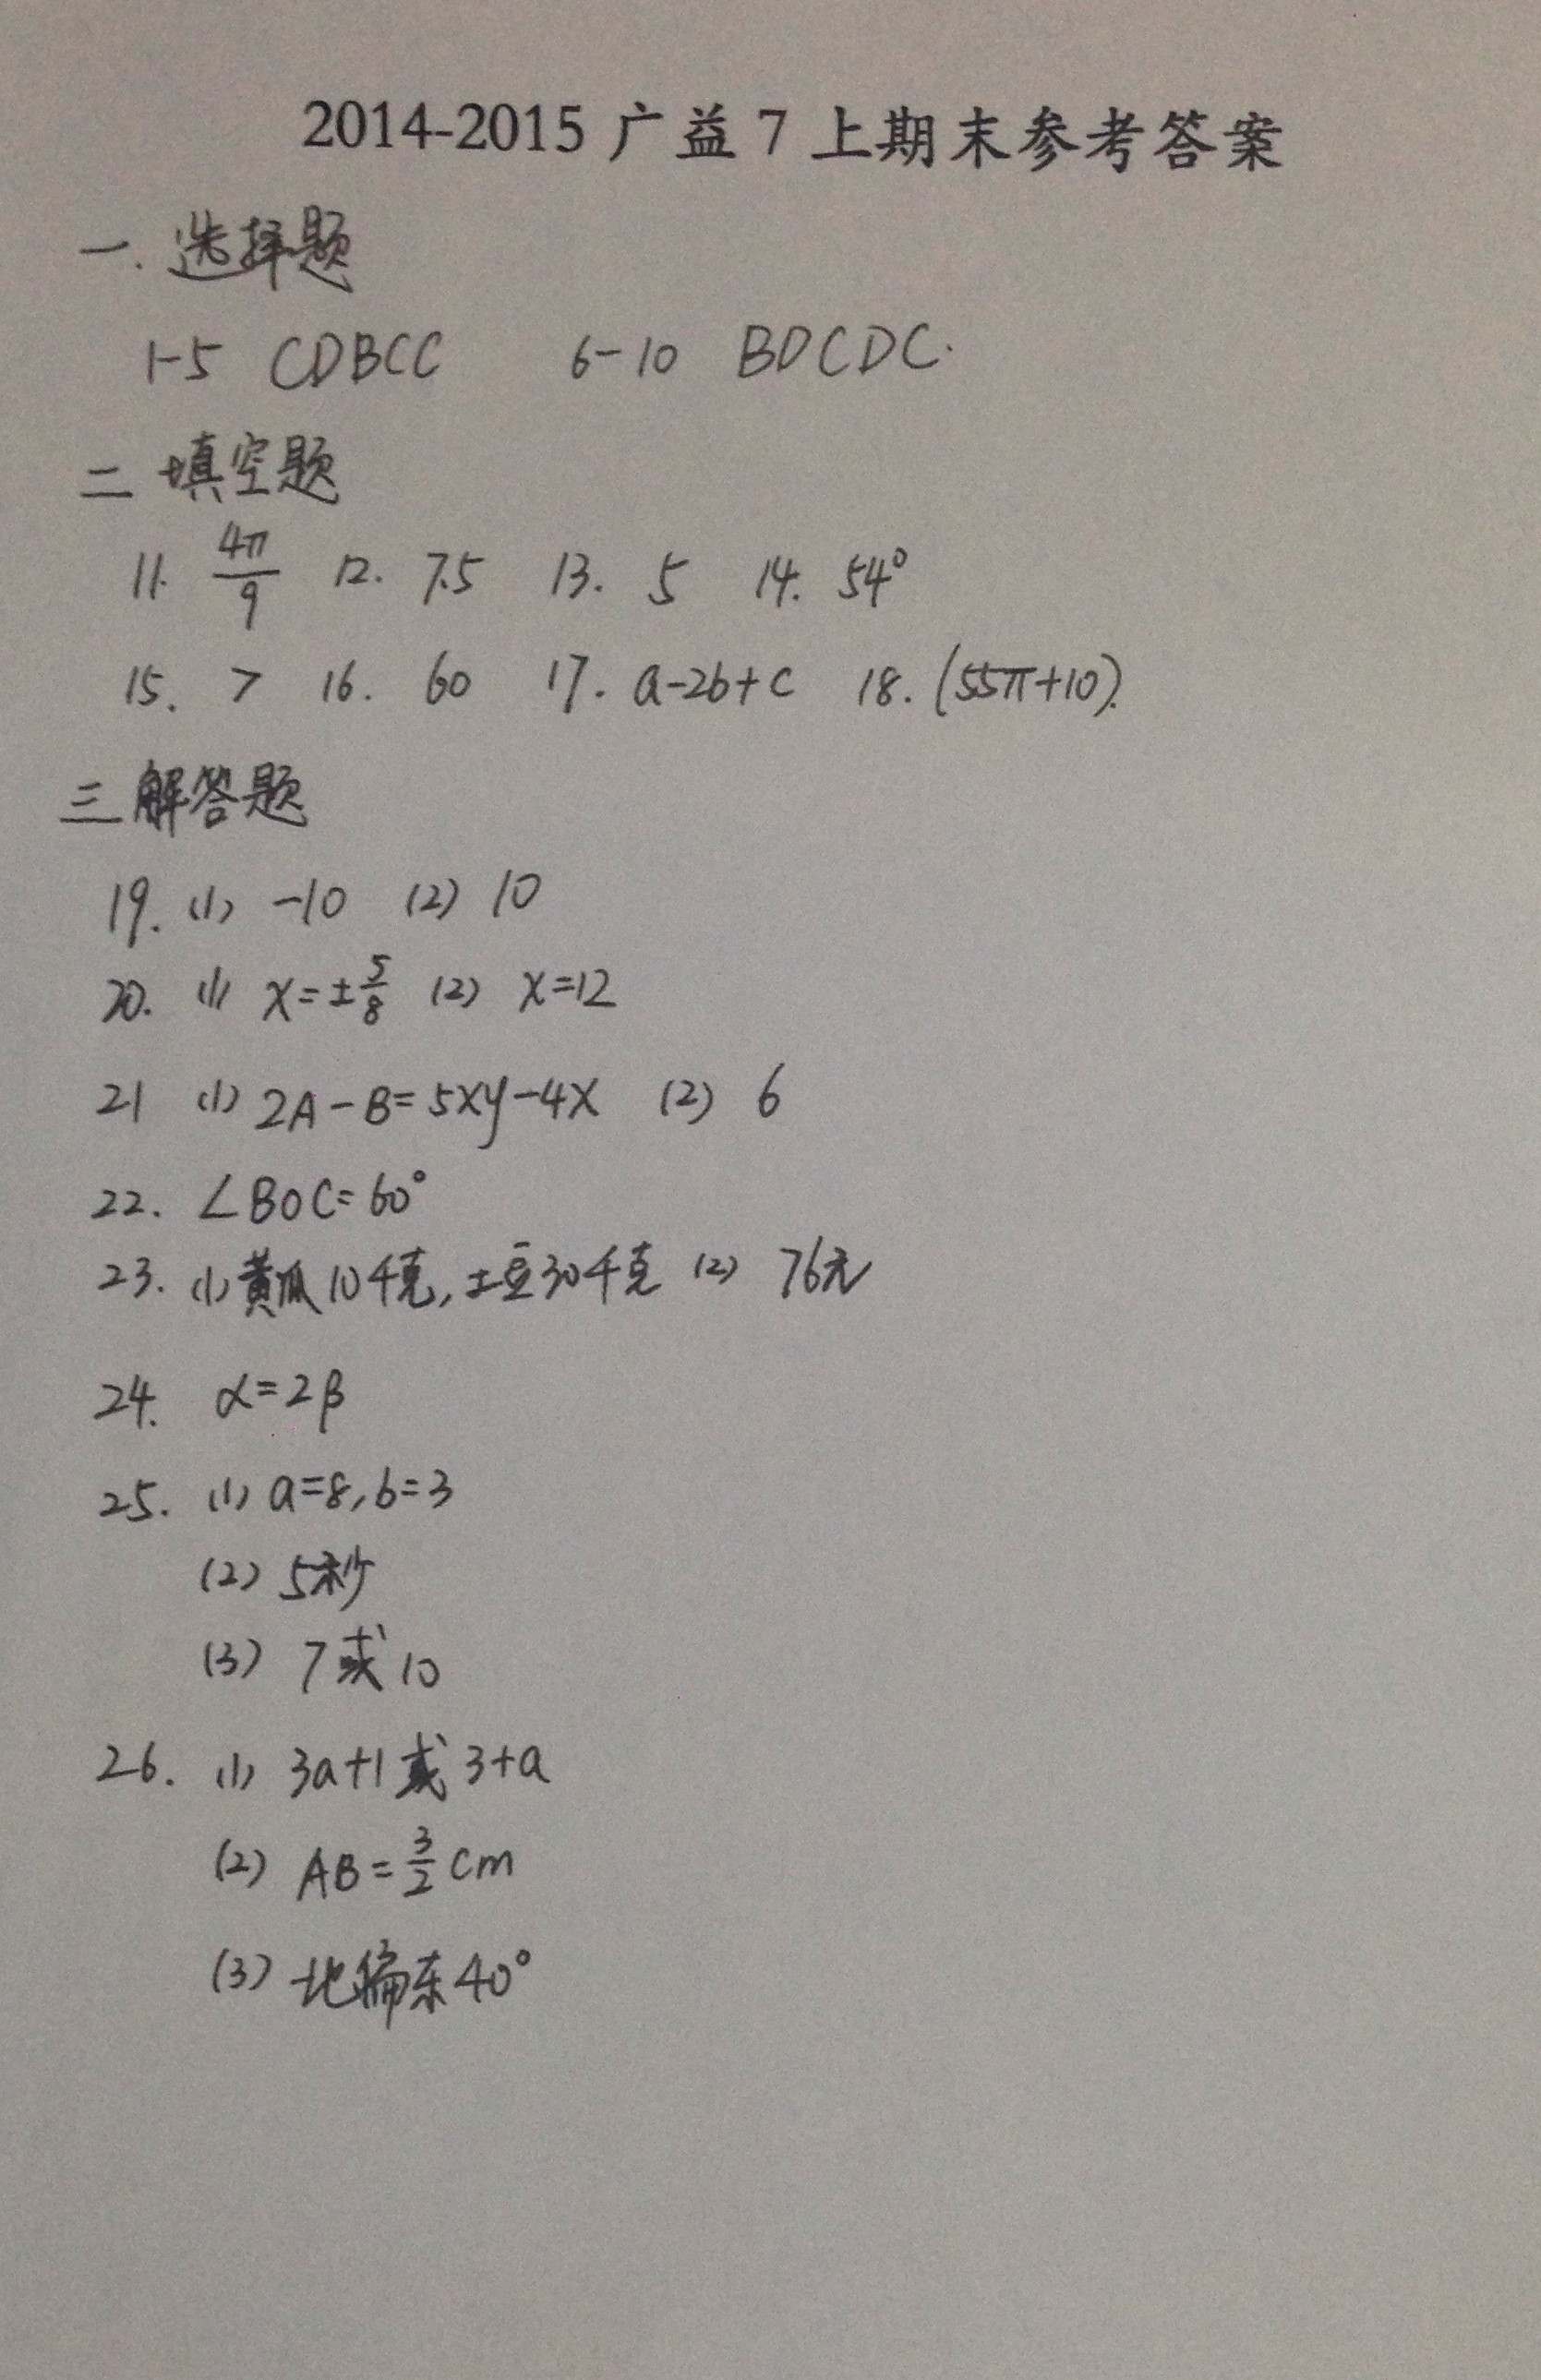 2014-2015 广益 7 上期末参考答案
一. 选择题
1-5 CDBCC 6-10 BDCDC.
二 填空题
11. 4π/9 12. 7.5 13. 5 14. 54°
15. > 16. 60 17. a-2b+c 18. (55π+10).
三 解答题
19. (1) -10 (2) 10
20. (1) x=±5/8 (2) x=12
21 (1) 2A-B=5xy-4x (2) 6
22. ∠BOC=60°
23. (1) 黄瓜10千克, 土豆30千克 (2) 76元
24. α=2β
25. (1) a=8, b=3
(2) 5秒
(3) 7或10
26. (1) 3a+1或3+a
(2) AB=3/2cm
(3) 北偏东40°